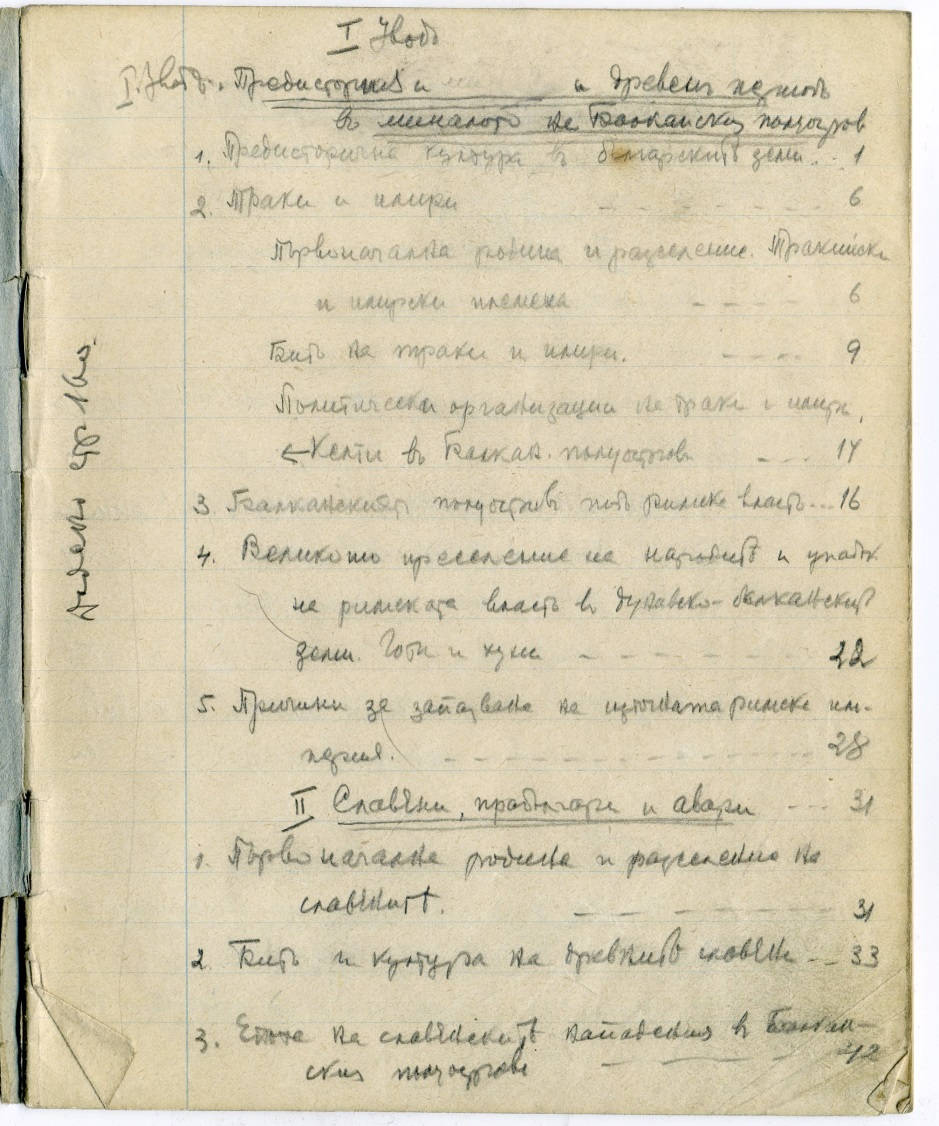 I Уводъ
I. Уводъ. Предистория и и древенъ периодъ
въ миналото на Балканския полуостров
1. Предисторична култура въ българскитѣ земи... 1
2. Траки и илири - - - - - - 6
Първоначална родина и разселение. Тракийски
и илирски племена - - - - 6
Битъ на траки и илири. - - - - 9
Политическа организация на траки и илири.
← Келти въ Балкан. полуостровъ - - - 14
3. Балканскиятъ полуостровъ подъ римска власть... 16
4. Великото преселение на народитѣ и упадък
на римската власть въ дунавско-балканскитѣ
земи. Готи и хуни - - - - - - 22
5. Причини за запазване на източната римска им-
перия. - - - - - - - - 28
II Славѣни, прабългари и авари - - - 31
1. Първоначална родина и разселение на
славѣнитѣ. - - - - - - 31
2. Битъ и култура на древнитѣ славѣни - - 33
3. на славѣнскитѣ нападения въ Балкан-
ския полуостровъ - - - - - 42
стр. 160.